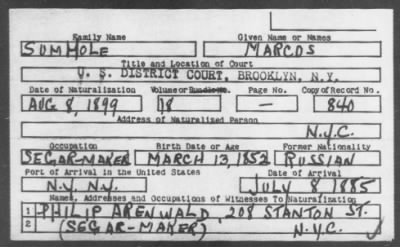 Family Name Given Name or Names
SUMHOLE MARCOS
Title and Location of Court
U. S. DISTRICT COURT, BROOKLYN, N.Y.
Date of Naturalization Volume or Bundle No. Page No. Copy of Record No.
AUG 8, 1899 18 — 840
Address of Naturalized Person
N.Y.C.
Occupation Birth Date or Age Former Nationality
SEGAR-MAKER MARCH 13, 1852 RUSSIAN
Port of Arrival in the United States Date of Arrival
N.Y. N.Y. JULY 8 1885
Names, Addresses and Occupations of Witnesses To Naturalization
1 PHILIP ARENWALD, 208 STANTON ST.
2 (SEGAR-MAKER) N.Y.C.